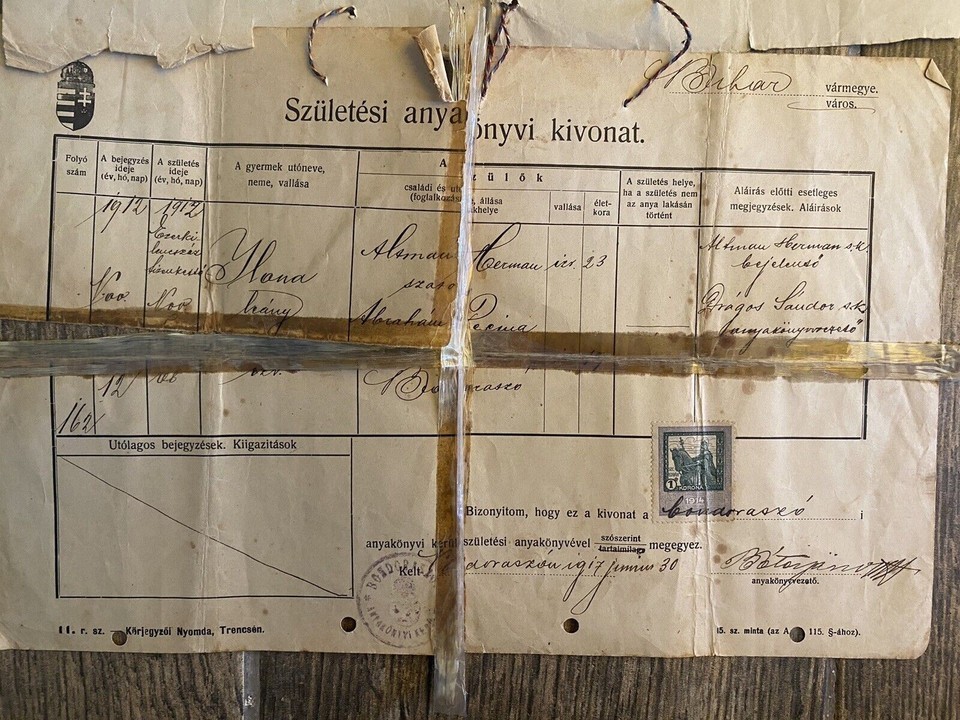 Bihar vármegye.
város.
Születési anyakönyvi kivonat.
Folyó szám
A bejegyzés ideje (év, hó, nap)
A születés ideje (év, hó, nap)
A gyermek utóneve, neme, vallása
A szülők
családi és utó
(foglalkozás
állása
akhelye
vallása
élet-kora
A születés helye, ha a születés nem az anya lakásán történt
Aláírás előtti esetleges megjegyzések. Aláírások
1912 1912
Ezerki
lencszáz
tizenkettő
Ilona
leány
izr.
Altman Herman izr. 23
szabó
Ábrahám
Altman Herman s.k.
bejelentő
Drágos Sandor s.k.
anyakönyvvezető
Nov. Nov.
12
162
Utólagos bejegyzések. Kiigazítások
1 KORONA
1914
Bizonyítom, hogy ez a kivonat a bondoraszó i
anyakönyvi kerül születési anyakönyvével szószerint
tartalmilag megegyez.
Kelt doraszón 1917 junius 30
anyakönyvvezető.
11. r. sz. — Körjegyzői Nyomda, Trencsén.
15. sz. minta (az A 115. §-ához).